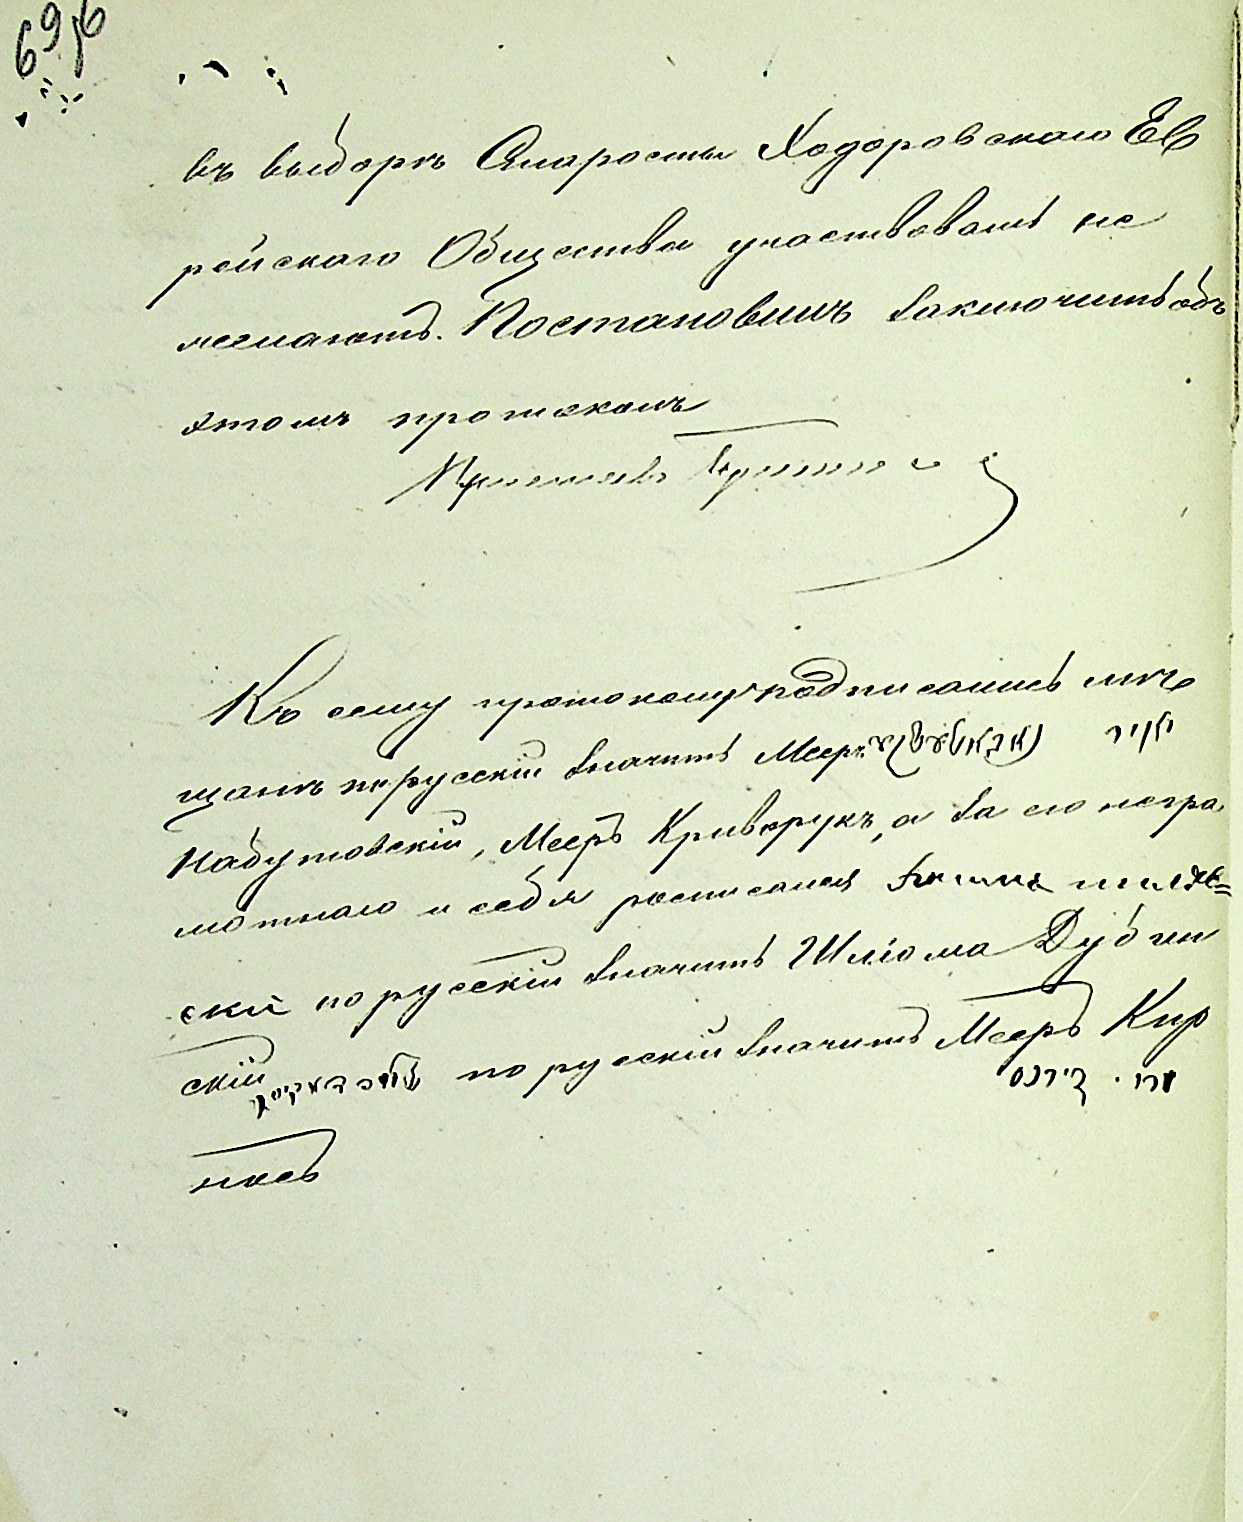 69 об
въ выборѣ Старосты Ходоровскаго Ев
рейскаго Общества участвовать не
желаютъ. Постановилъ Заключить объ
этомъ протоколъ
Приставъ
Къ сему протоколу подписались мѣ
щане по русскій значитъ Мееръ מאיר
Набутовскій, Мееръ Криворукъ, а за его негра
мотнаго и себя росписался
скій по русскій значитъ Шліома Дубин
скій по русскій значитъ Мееръ Кир
носъ